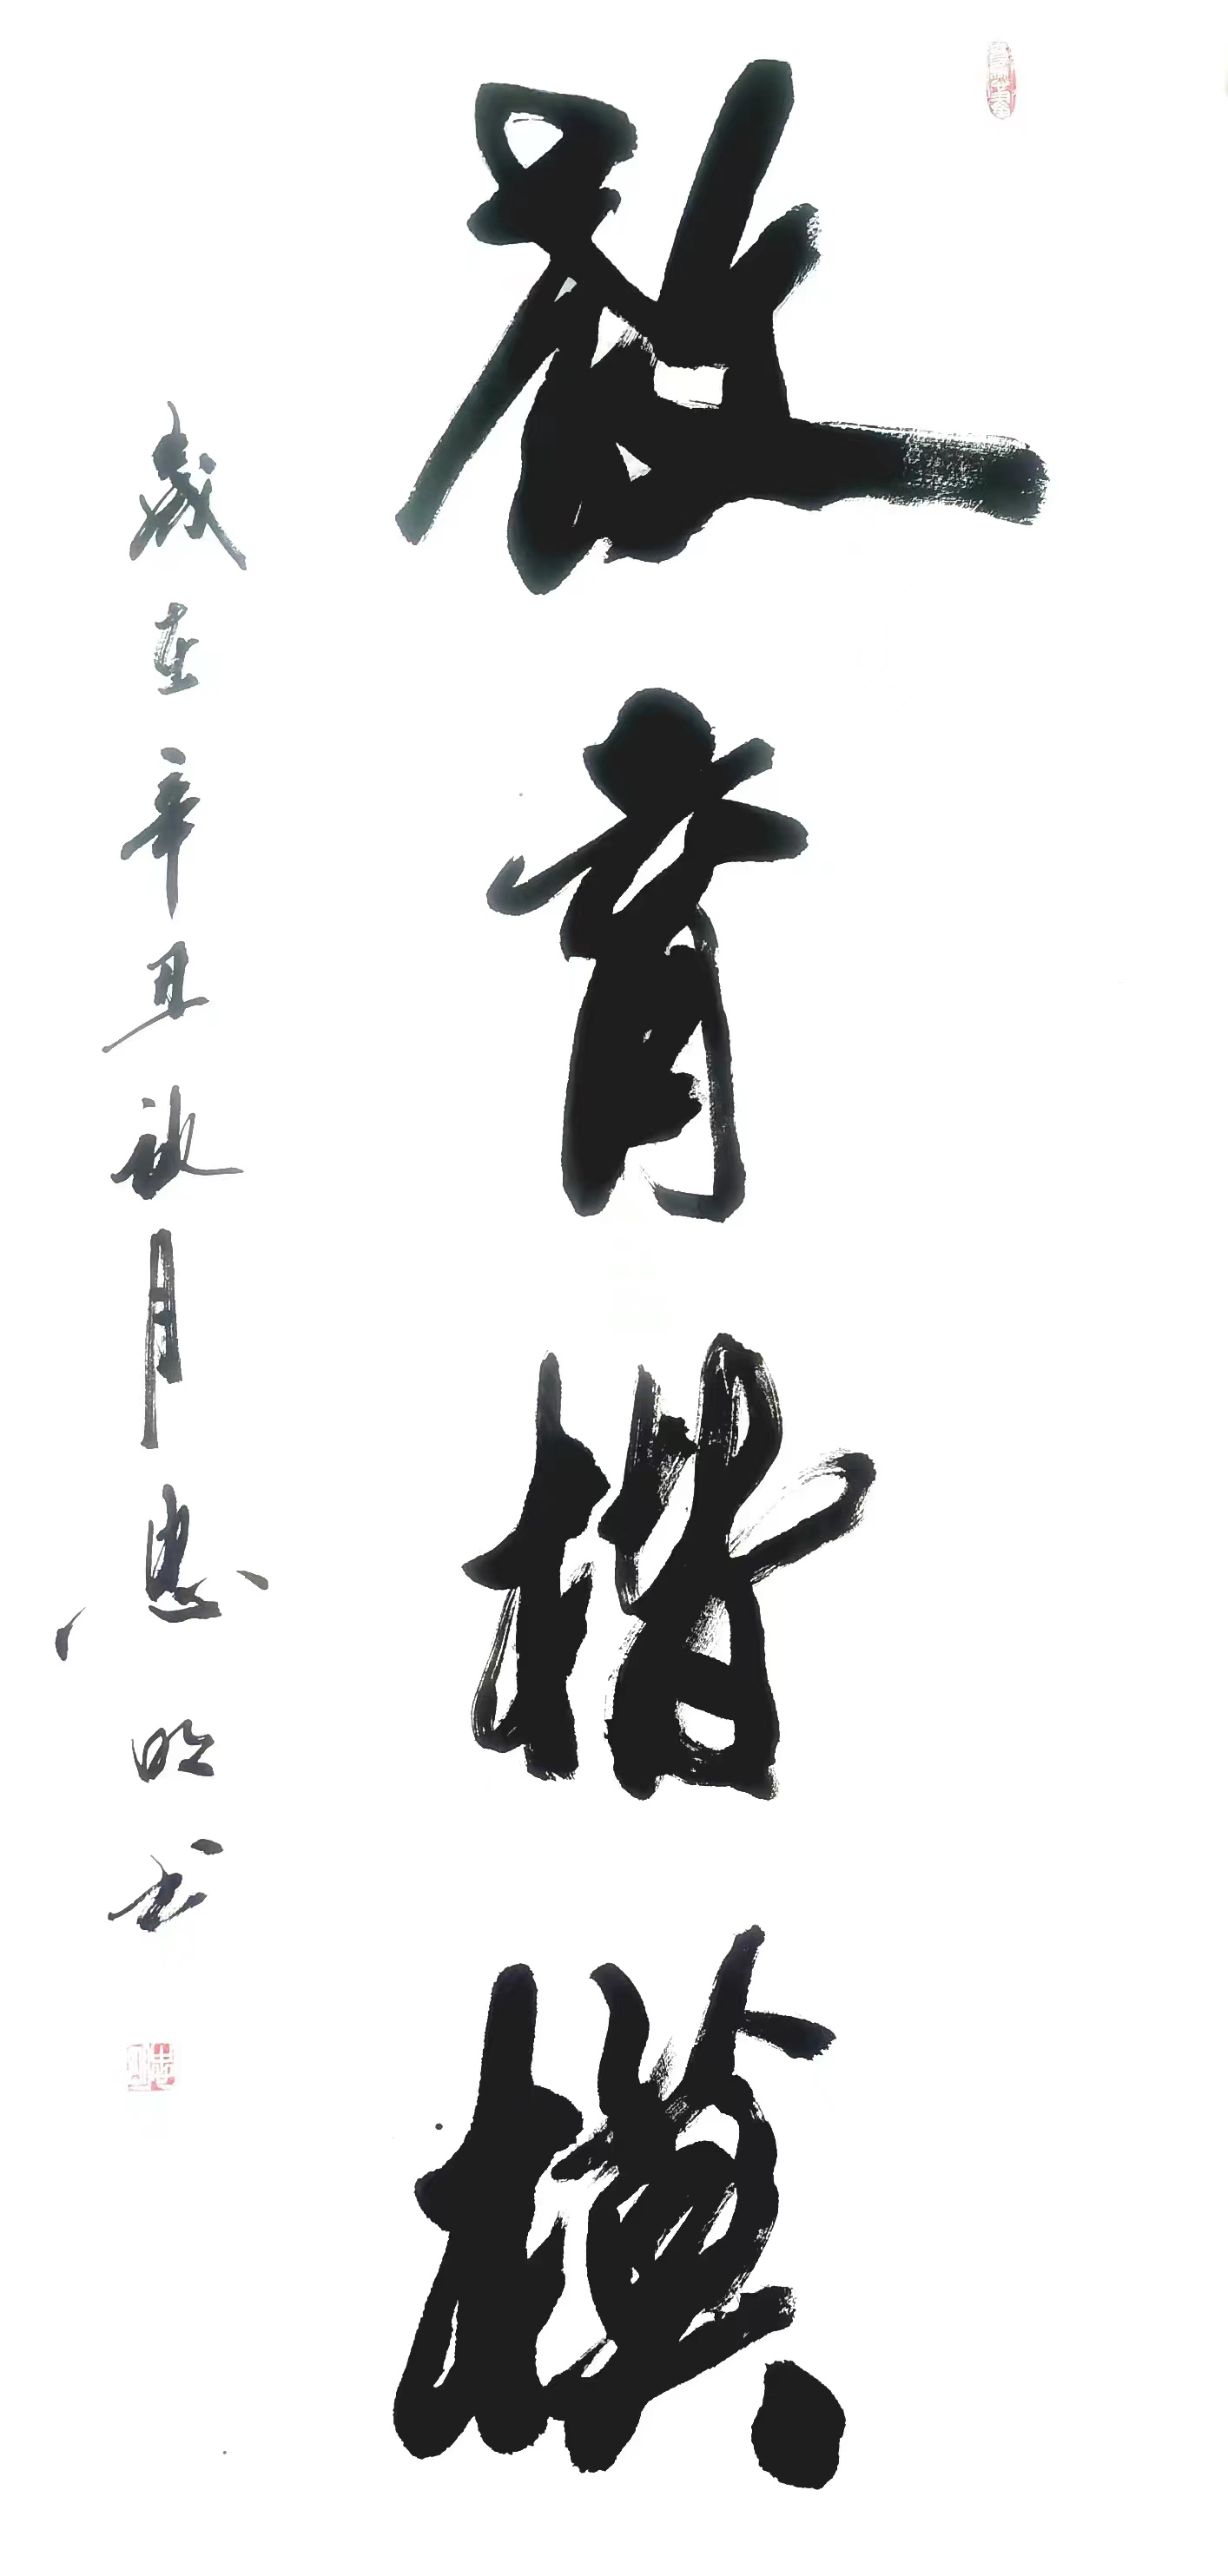 教育楷模
岁在辛丑秋月忠明书